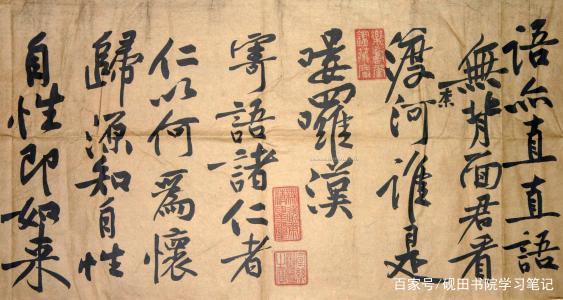 語亦直直語
無背面君看
渡奈河誰是
嘍羅漢
寄語諸仁者
仁以何為懷
歸源知自性
自性即如来
百家号/砚田书院学习笔记